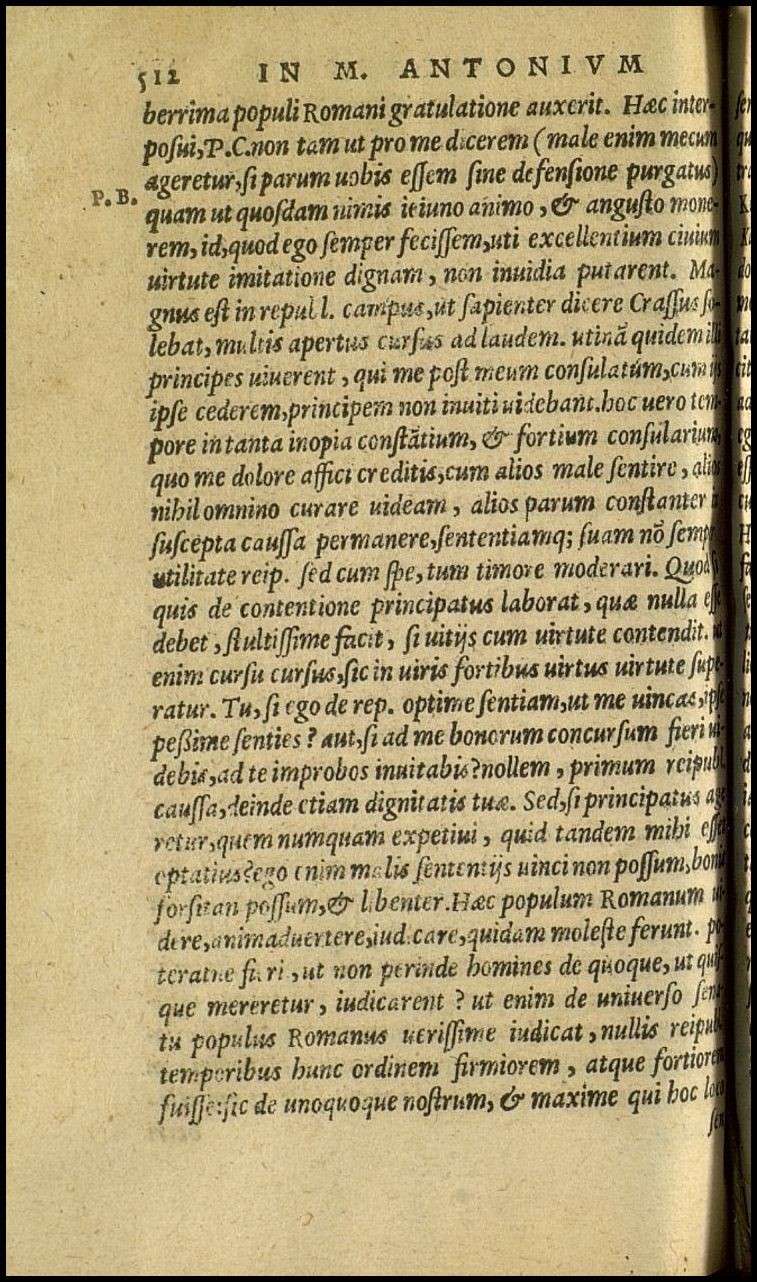 512 IN M. ANTONIVM
berrima populi Romani gratulatione auxerit. Hæc inter-
posui, P.C. non tam ut pro me dicerem (male enim mecum
ageretur, si parum uobis essem sine defensione purgatus)
P.B.
quam ut quosdam nimis ieiuno animo, & angusto mone-
rem, id, quod ego semper fecissem, uti excellentium ciuium
uirtute imitatione dignam, non inuidia putarent. Ma-
gnus est in repub l. campus, ut sapienter dicere Crassus so-
lebat, multis apertus cursus ad laudem. utinā quidem illi
principes uiuerent, qui me post meum consulatum, cum ijs
ipse cederem, principem non inuiti uidebant. hoc uero tem-
pore in tanta inopia constātium, & fortium consularium,
quo me dolore affici creditis, cum alios male sentire, alios
nihil omnino curare uideam, alios parum constanter in
suscepta caussa permanere, sententiamq; suam nō semper
utilitate reip. sed cum spe, tum timore moderari. Quod si
quis de contentione principatus laborat, quæ nulla esse
debet, stultissime facit, si uitijs cum uirtute contendit. ut
enim cursu cursus, sic in uiris fortibus uirtus uirtute supe-
ratur. Tu, si ego de rep. optime sentiam, ut me uincas, ipse
peßime senties? aut, si ad me bonorum concursum fieri ui-
debis, ad te improbos inuitabis? nollem, primum reipubl.
caussa, deinde etiam dignitatis tuæ. Sed, si principatus age-
retur, quem numquam expetiui, quid tandem mihi esset
optatius? ego enim malis sententijs uinci non possum, bonis
forsitan possum, & libenter. Hæc populum Romanum ui-
dere, animaduertere, iudicare, quidam moleste ferunt. po-
teratne fieri, ut non perinde homines de quoque, ut quis-
que mereretur, iudicarent? ut enim de uniuerso sena-
tu populus Romanus uerissime iudicat, nullis reipubl.
temporibus hunc ordinem firmiorem, atque fortiorem
fuisse: sic de unoquoque nostrum, & maxime qui hoc loco
sen